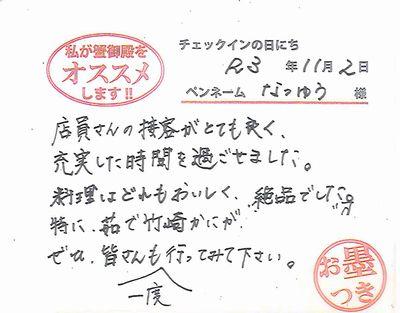 私が蟹御殿を
オススメ
します!!
チェックインの日にち
R3 年 11月 2日
ペンネーム なつゆう 様
店員さんの接客がとても良く、
充実した時間を過ごせました。
料理はどれもおいしく、絶品でした。
特に、茹で竹崎かにが
ぜひ、皆さんも行ってみて下さい。
一度
お墨
つき